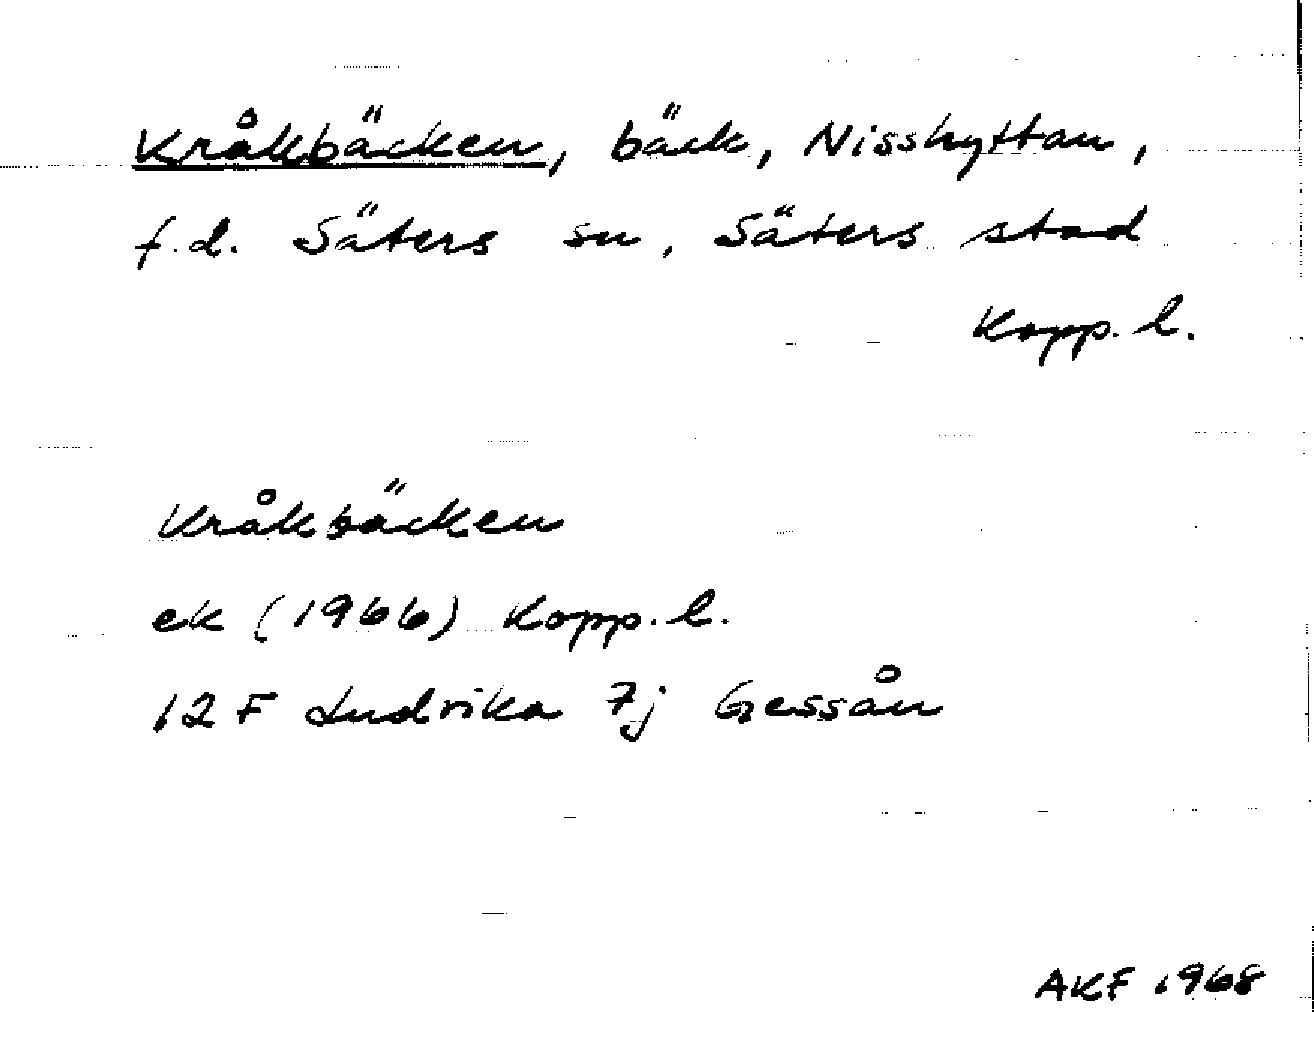 Kråkbäcken, bäck, Nisshyttan,
f.d. Säters sn, Säters stad
Kopp. l.
Kråkbäcken
ek (1966) Kopp. l.
12 F Ludvika 7j Gessån
AKF 1968